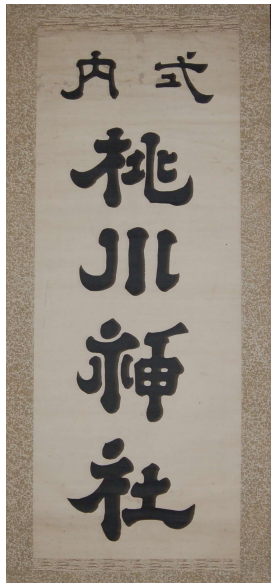 式内
桃川神社